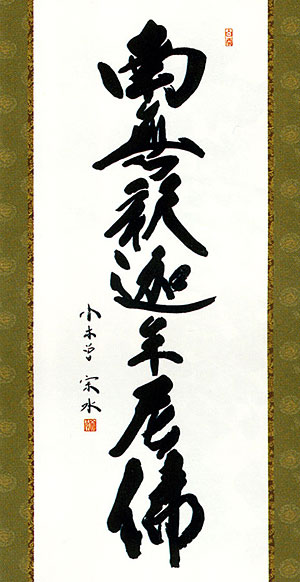 南無釈迦牟尼佛
小木曽 宗水